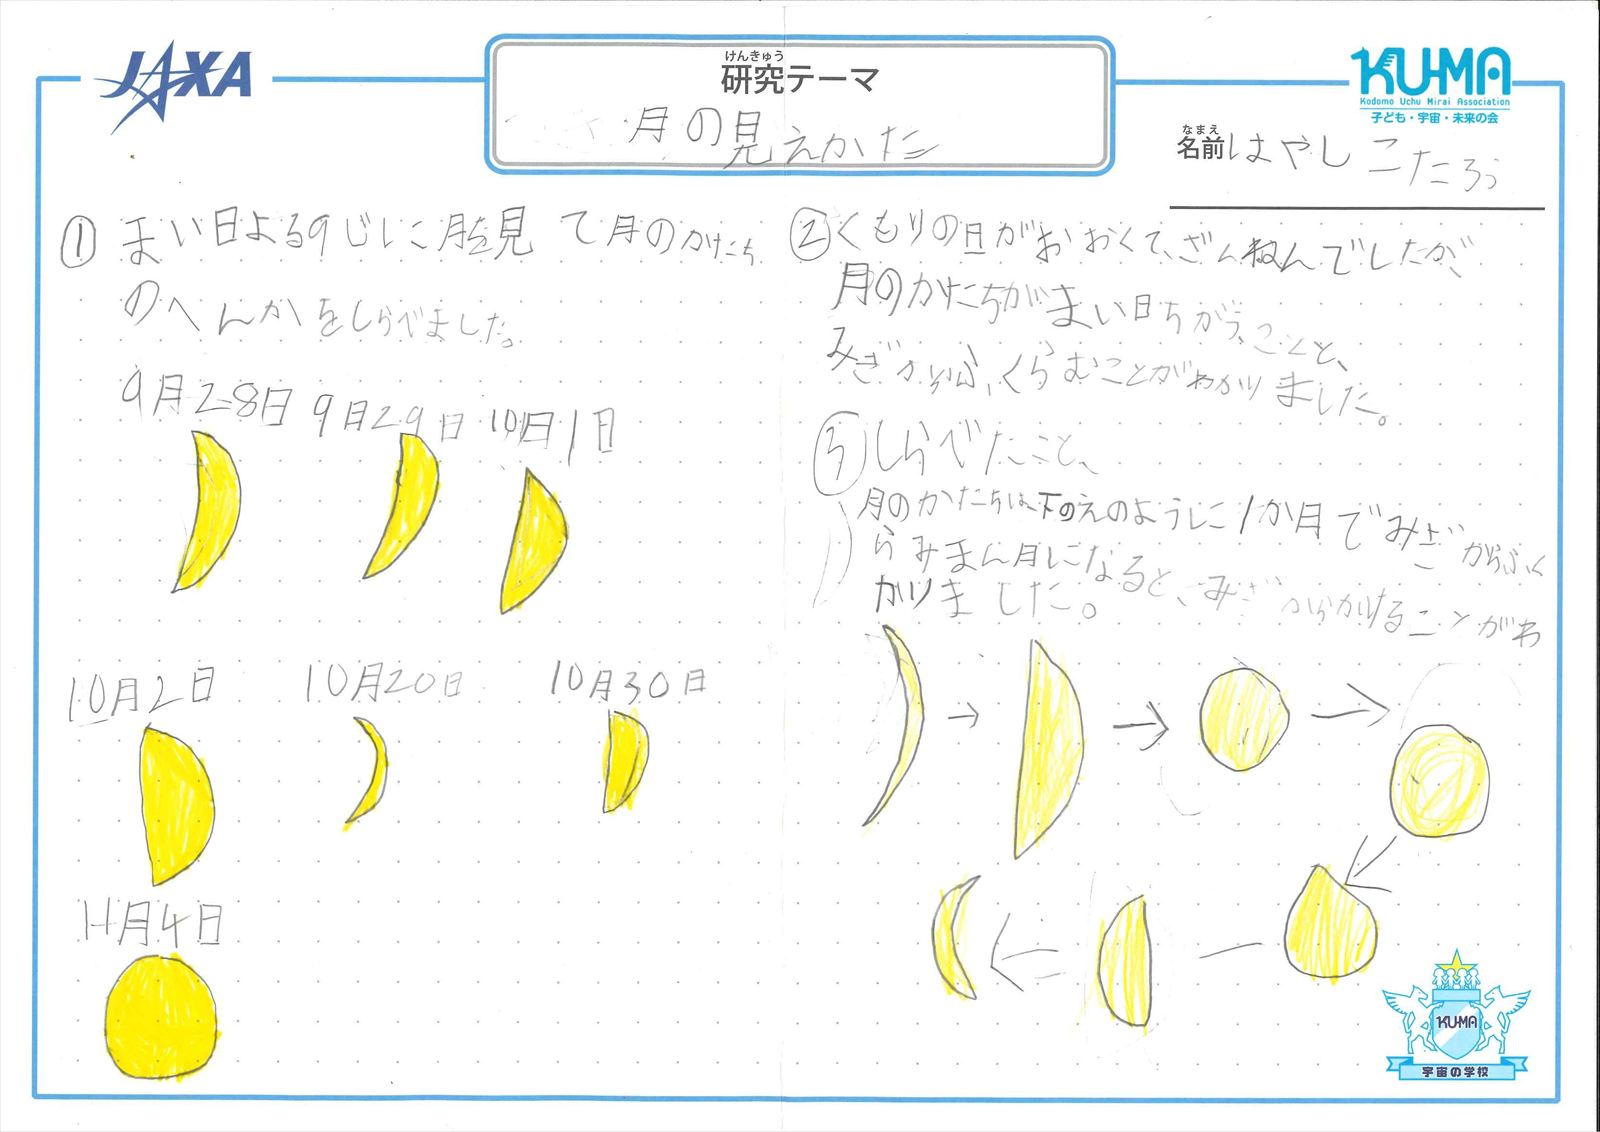 JAXA
けんきゅう
研究テーマ
月の見えかた
KU-MA
Kodomo Uchu Mirai Association
子ども・宇宙・未来の会
なまえ
名前 はやし こたろう
① まい日よる9じに月を見て月のかたち
のへんかをしらべました。
9月28日 9月29日 10月1日
10月2日 10月20日 10月30日
11月4日
② くもりの日がおおくて、ざんねんでしたが、
月のかたちがまい日ちがうことと、
みぎからふくらむことがわかりました。
③ しらべたこと、
月のかたちは、下のえのように1か月でみぎからふく
らみまん月になると、みぎからかけることがわ
かりました。
KU-MA
宇宙の学校